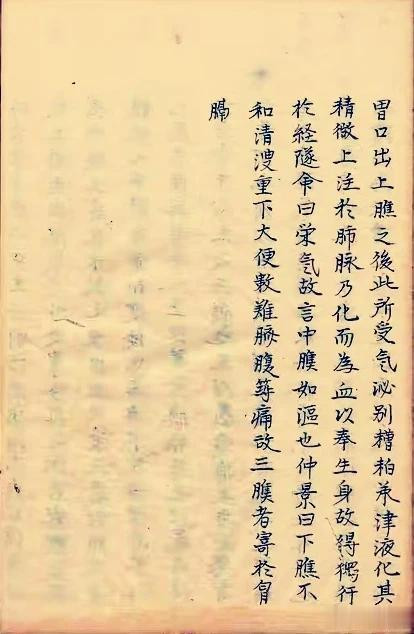 胃口出上膲之後此所受気泌別糟粕蒸津液化其
精微上注於肺脉乃化而為血以奉生身故得獨行
於経隧命曰栄気故言中膲如漚也仲景曰下膲不
和清溲重下大便數難臍腹築痛故三膲者寄於胷
膈